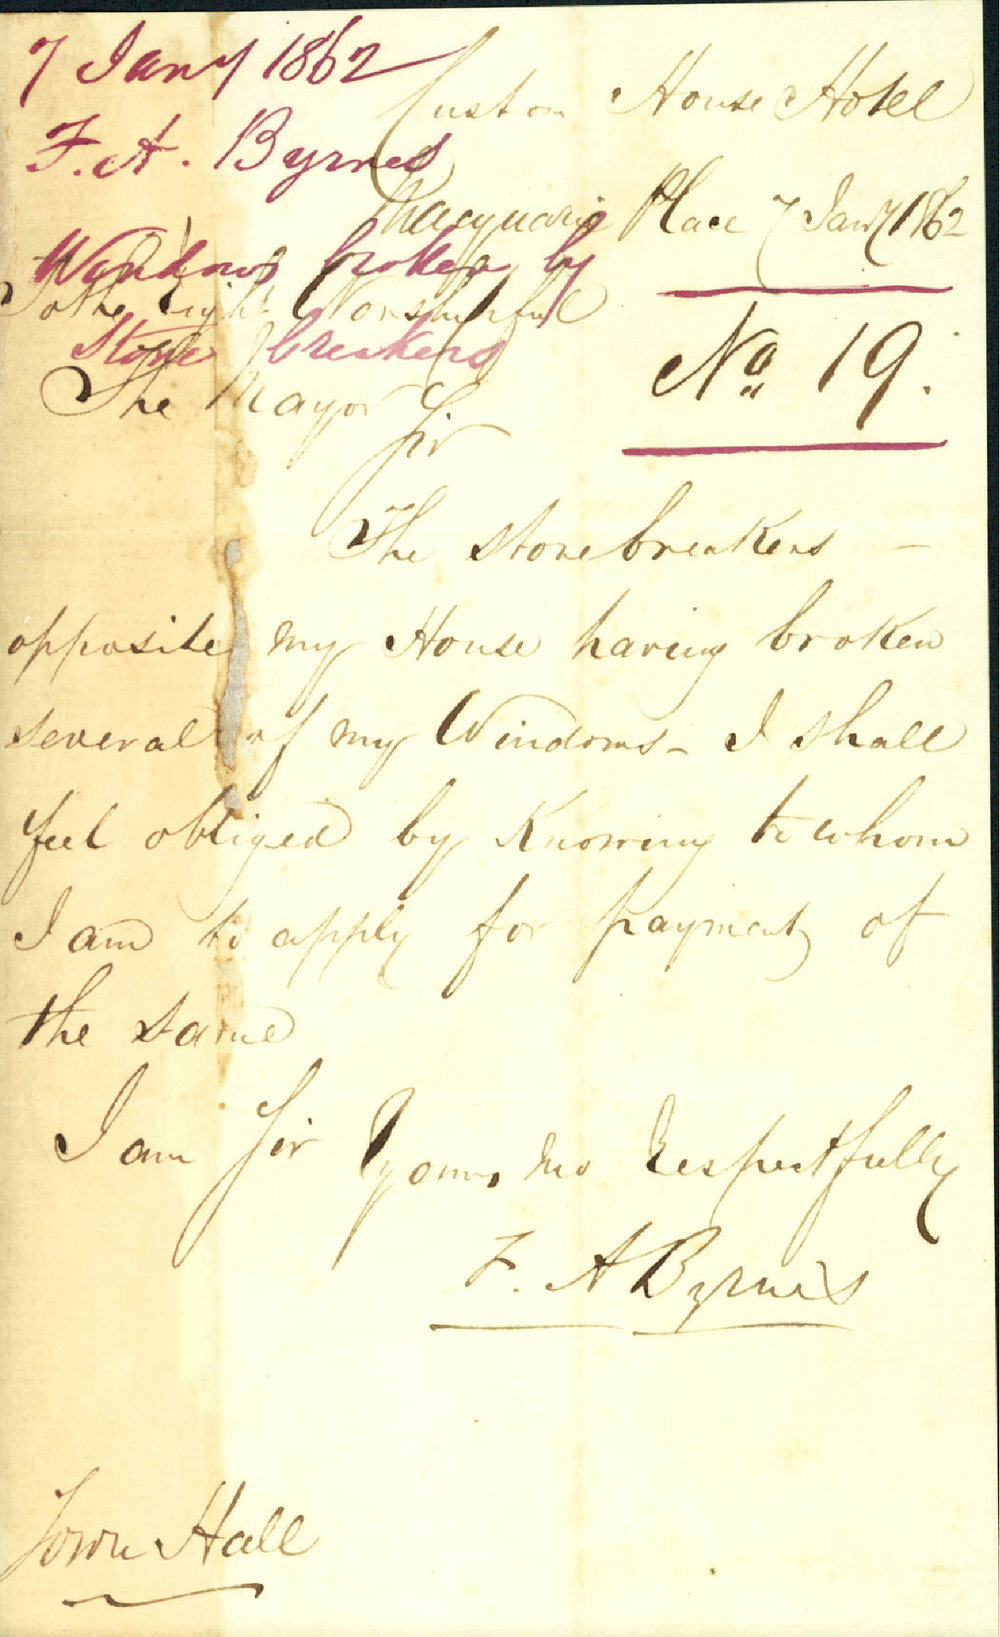 7 Jany 1862
F. A. Byrnes
Windows broken by
Stone breakers
Custom House Hotel
Macquarie Place 7 Jany 1862
No 19.
To the Right Worshipful
The Mayor
Sir
The stonebreakers –
opposite my House having broken
several of my Windows – I shall
feel obliged by Knowing to whom
I am to apply for payment of
the same
I am Sir
yours Respectfully
F. A Byrnes
Town Hall